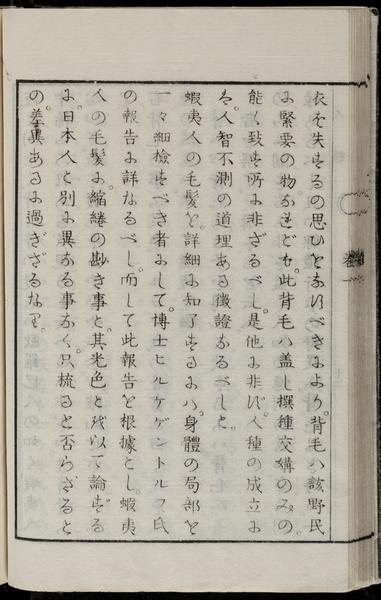 衣を失するの思ひをなすべきによりて。背毛ハ該野民
に緊要の物なれども。此背毛ハ盖し撰種交媾のみの。
能く致す所に非ざるべし。是他に非ず。人種の成立に
は。人智不測の道理ある徴證なるべしと。
蝦夷人の毛髪を。詳細に知了するにハ。身體の局部を
一々細檢すべき者にして。博士ヒルケゲントルフ氏
の報告に詳なるべし。而して此報告を根據とし。蝦夷
人の毛髪に。縮綣の尠き事と。其光色とを以て論ずる
に。日本人と別に異なる事なく。只梳ると否らざると
の。差異あるに過ぎざるなり。